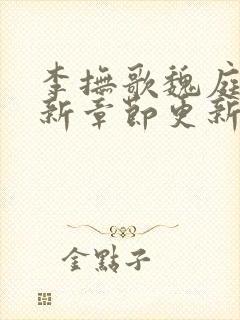 李撫歌魏庭
新章節更新
金點子